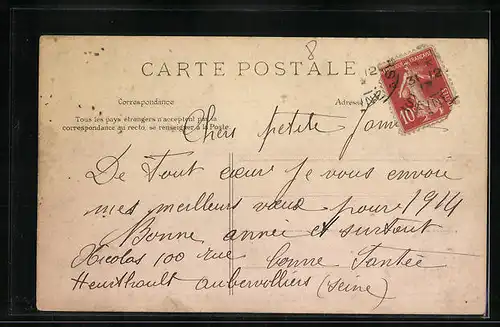 8
CARTE POSTALE
Correspondance
Adresse
Tous les pays étrangers n'acceptent pas la
correspondance au recto, se renseigner à la Poste.
Chers petite
De tout cœur je vous envoie
mes meilleurs vœux pour 1914
Bonne année et surtout
Nicolas 100 rue bonne Santée
Heurthault Aubervilliers (Seine)
10